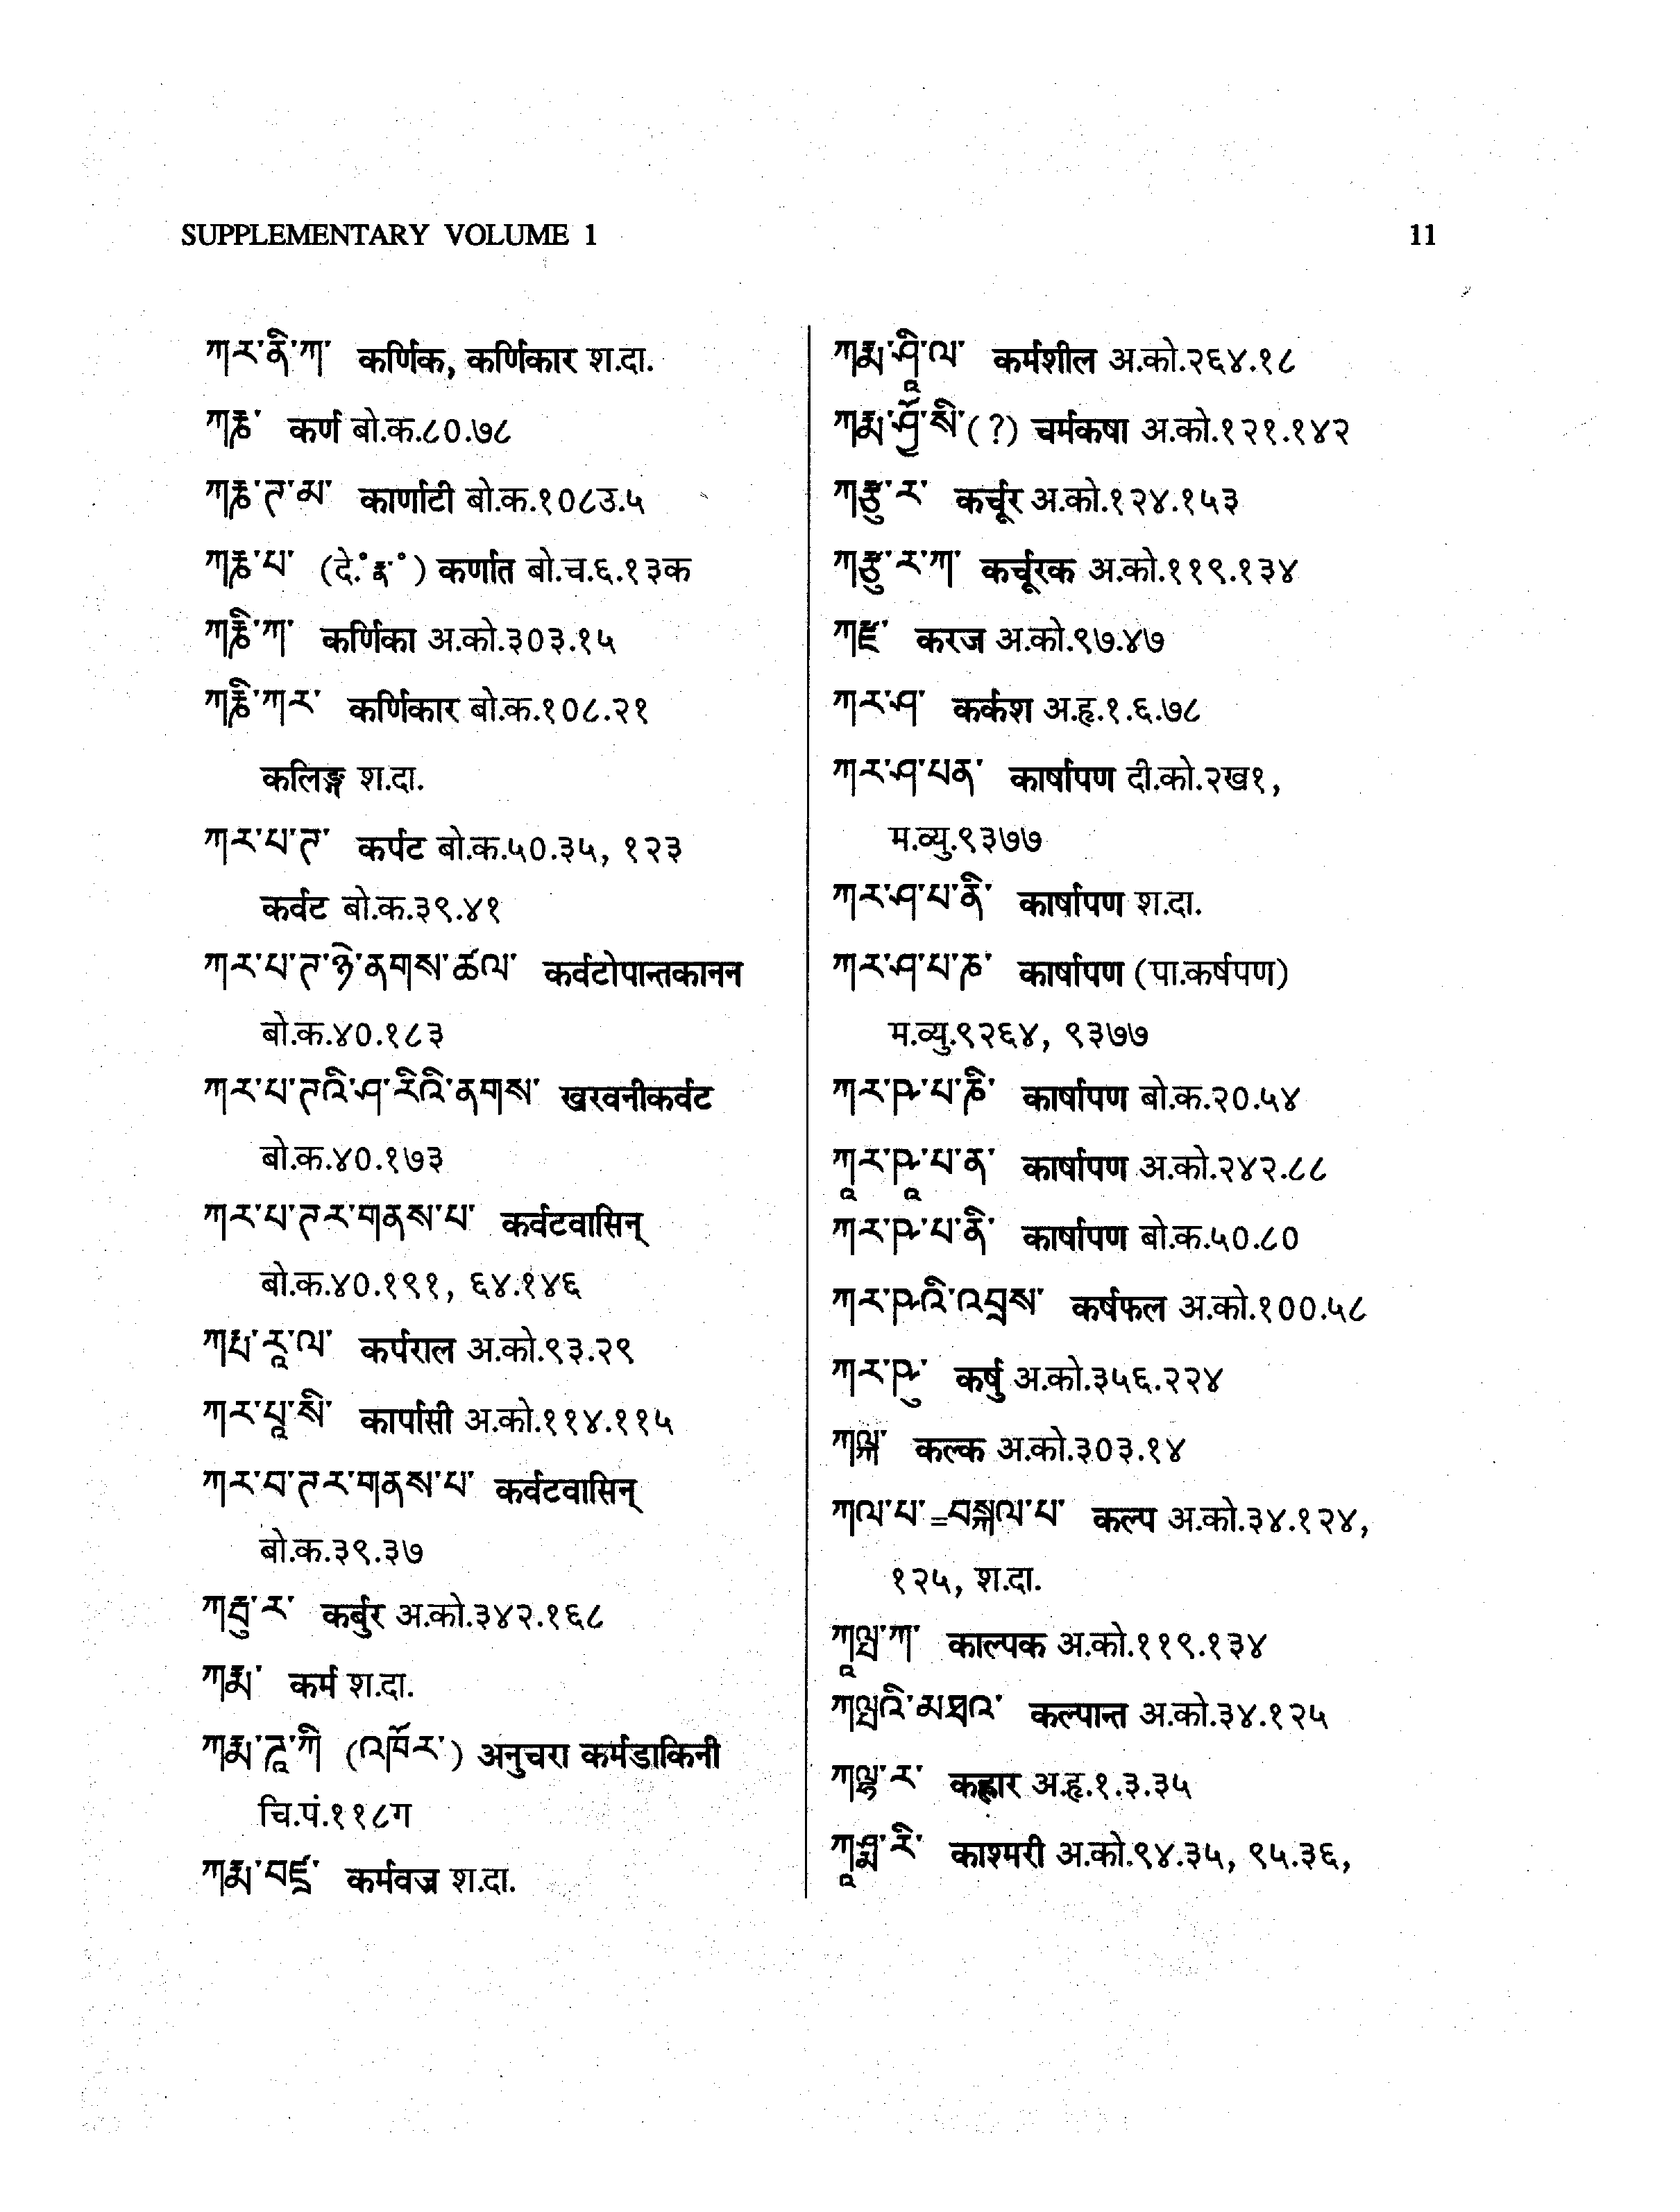 SUPPLEMENTARY VOLUME 1
11
ཀར་ནི་ཀ་ कर्णिक, कर्णिकार श.दा.
ཀརྞ་ कर्ण बो.क.८०.७८
ཀརྞ་ཊ་མ་ कार्णाटी बो.क.१०८उ.५
ཀརྞ་པ་ कर्णात बो.च.६.१३क
ཀརྞི་ཀ་ कर्णिका अ.को.३०३.१५
ཀརྞི་ཀར་ कर्णिकार बो.क.१०८.२१
कलिङ्ग श.दा.
ཀར་པ་ཊ་ कर्पट बो.क.५०.३५, १२३
कर्वट बो.क.३९.४१
ཀར་པ་ཊ་ཉེ་ནགས་ཚལ་ कर्वटोपान्तकानन
बो.क.४०.१८३
ཀར་པ་ཊའི་ཤ་རིའི་ནགས་ खरवनीकर्वट
बो.क.४०.१७३
ཀར་པ་ཊར་གནས་པ་ कर्वटवासिन्
बो.क.४०.१९१, ६४.१४६
ཀརྤ་རཱ་ལ་ कर्पराल अ.को.९३.२९
ཀར་པཱ་སི་ कार्पासी अ.को.११४.११५
ཀར་བ་ཊར་གནས་པ་ कर्वटवासिन्
बो.क.३९.३७
ཀརྦུ་ར་ कर्बुर अ.को.३४२.१६८
ཀརྨ་ कर्म श.दा.
ཀརྨ་ཌཱ་ཀི (འཁོར་) अनुचरा कर्मडाकिनी
चि.पं.११८ग
ཀརྨ་བཛྲ་ कर्मवज्र श.दा.
ཀརྨ་ཤཱི་ལ་ कर्मशील अ.को.२६४.१८
(?) चर्मकषा अ.को.१२१.१४२
ཀརྩུ་ར་ कर्चूर अ.को.१२४.१५३
ཀརྩུ་ར་ཀ་ कर्चूरक अ.को.११९.१३४
ཀརྫ་ करज अ.को.९७.४७
ཀར་ཤ་ कर्कश अ.हृ.१.६.७८
ཀར་ཤ་པན་ कार्षापण दी.को.२ख१,
म.व्यु.९३७७
ཀར་ཤ་པ་ནི་ कार्षापण श.दा.
ཀར་ཤ་པ་ཎ་ कार्षापण (पा.कर्षपण)
म.व्यु.९२६४, ९३७७
ཀར་ཥ་པ་ཎི་ कार्षापण बो.क.२०.५४
ཀཱར་ཥཱ་པ་ན་ कार्षापण अ.को.२४२.८८
ཀར་ཥ་པ་ནི་ कार्षापण बो.क.५०.८०
ཀར་ཥའི་འབྲས་ कर्षफल अ.को.१००.५८
ཀར་ཥུ་ कर्षु अ.को.३५६.२२४
ཀལྐ་ कल्क अ.को.३०३.१४
ཀལ་པ་=བསྐལ་པ་ कल्प अ.को.३४.१२४,
१२५, श.दा.
ཀཱལྤ་ཀ་ काल्पक अ.को.११९.१३४
ཀལྤའི་མཐའ་ कल्पान्त अ.को.३४.१२५
ཀལྷ་ར་ कह्लार अ.हृ.१.३.३५
ཀཱཤྨ་རི་ काश्मरी अ.को.९४.३५, ९५.३६,